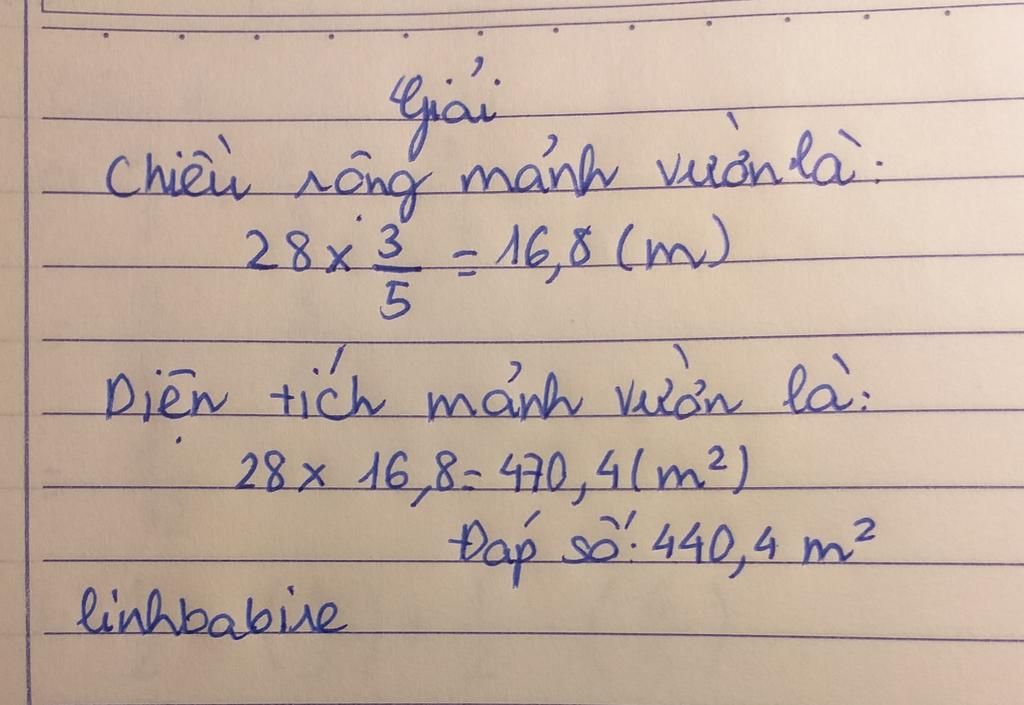 Giải
Chiều rộng mảnh vườn là:
28 × 3/5 = 16,8 (m)
Diện tích mảnh vườn là:
28 × 16,8 = 470,4 (m²)
Đáp số: 440,4 m²
linhbabive